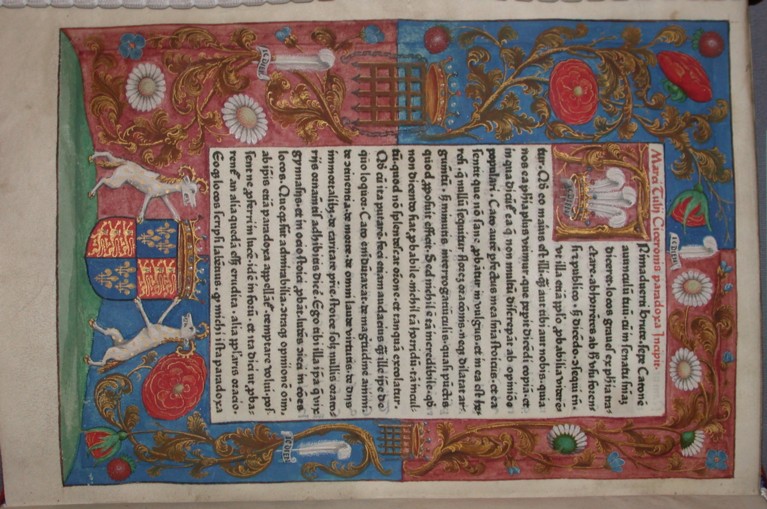 Marci Tulij Ciceronis paradoxa Incipit.
Nimaduerti brute, sepe Catonē
auunculū tuū, cū in senatu sniaȝ
diceret, locos graues ex phia tra-
ctare, abhorrētes ab h' usu forensi
et publico, sȝ dicēdo cōsequi tn̄
ut illa etiā pplo, pbabilia viderē-
tur. Qd eo maius est illi, q̄ aut tibi aut nobis, quia
nos ea phia plus vtimur, que peperit dicēdi copiā, et
in qua dicūt' ea q̄ non multū discrepāt ab opiniōe
populari. Cato aut pfectus mea snia stoicus, et ea
sentit que nō sane pbātur in vulgus, et in ea est he-
resi, q̄ nullū sequitur florē oracōnis, neqȝ dilatat ar-
gumētū, sȝ minutis interrogatiūculis, quasi pūctis
quod pposuit efficit. Sed nichil ē tā incredibile, qd
non dicendo fiat pbabile, nichil tā horridū, tā incul-
tū, quod nō splendescat oracōne et tanquā excolatur.
Qd cū ita putarē, feci etiam audacius, q̄ ille ipe de
quo loquor. Cato eni dūtaxat, de magnitudine animi,
de cōtinentia, de morte, de omni laude virtutis, de diis
immortalibȝ, de caritate prie, stoice solȝ oratoriis
ornamētis adhibitis dicere. Ego tibi illa ipa q̄ vix in
gymnasiis, et in ocio stoici pbāt, ludēs cōieci in cōes
locos. Que quia sūt admirabilia, cōtraqȝ opinionē oīm,
ab ipsis etiā paradoxa appellāt', temptare volui, pos-
sent ne pferri in lucē, id ē in forū, et ita dici ut pba-
rent', an alia quedā esset erudita, alia pplaris oracio.
Eoqȝ locos scripsi libētius, q̄ michi ista paradoxa
IC DIEN
IC DIEN
IC DIEN